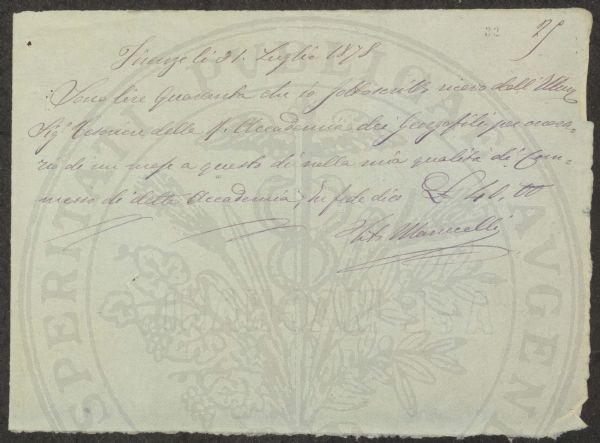 32
25
Firenze li 31. Luglio 1878
Sono lire Quaranta che io sottoscritto ricevo dall'Illmo
Sig.e Tesoriere della R. Accademia dei Georgofili per onora-
rio di un mese a questo dì nella mia qualità di Com-
messo di detta Accademia, In fede dico £ 40.00
Vito Manicelli
PROSPERITATI PUBLICAE AUGENDAE